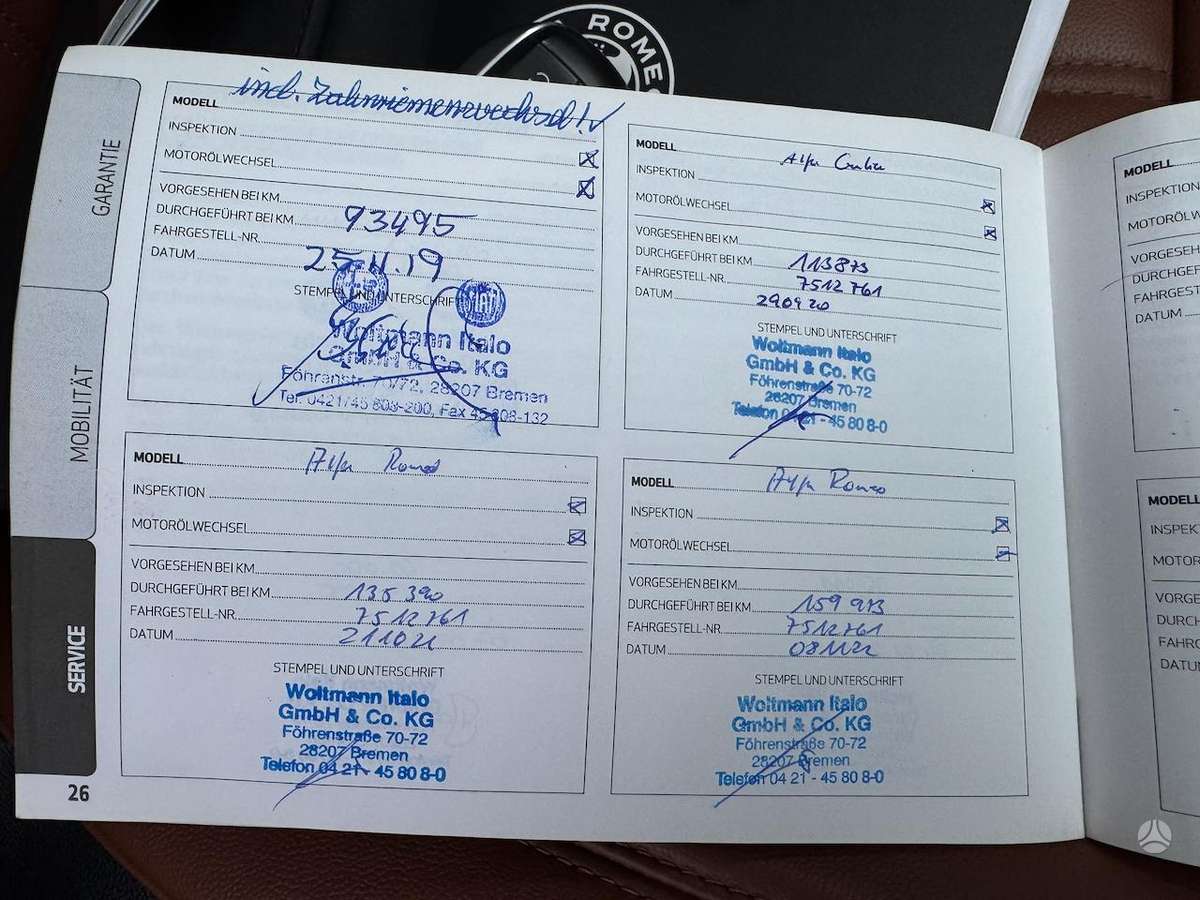 ROMEO
GARANTIE
MOBILITÄT
SERVICE
26
incl. Zahnriemenwechsel!
MODELL
INSPEKTION
MOTORÖLWECHSEL
VORGESEHEN BEI KM
DURCHGEFÜHRT BEI KM 93495
FAHRGESTELL-NR.
DATUM 25.11.19
STEMPEL UND UNTERSCHRIFT
FIAT
Woltmann Italo
GmbH & Co. KG
Föhrenstr. 70/72, 28207 Bremen
Tel. 0421/45 808-200, Fax 45 808-132
MODELL Alfa
INSPEKTION
MOTORÖLWECHSEL
VORGESEHEN BEI KM
DURCHGEFÜHRT BEI KM 113873
FAHRGESTELL-NR. 7512761
DATUM 290920
STEMPEL UND UNTERSCHRIFT
Woltmann Italo
GmbH & Co. KG
Föhrenstraße 70-72
28207 Bremen
Telefon 04 21 - 45 80 8-0
MODELL Alfa Romeo
INSPEKTION
MOTORÖLWECHSEL
VORGESEHEN BEI KM
DURCHGEFÜHRT BEI KM 135390
FAHRGESTELL-NR. 7512761
DATUM 211021
STEMPEL UND UNTERSCHRIFT
Woltmann Italo
GmbH & Co. KG
Föhrenstraße 70-72
28207 Bremen
Telefon 04 21 - 45 80 8-0
MODELL Alfa Romeo
INSPEKTION
MOTORÖLWECHSEL
VORGESEHEN BEI KM
DURCHGEFÜHRT BEI KM 159973
FAHRGESTELL-NR. 7512761
DATUM 081122
STEMPEL UND UNTERSCHRIFT
Woltmann Italo
GmbH & Co. KG
Föhrenstraße 70-72
28207 Bremen
Telefon 04 21 - 45 80 8-0
MODELL
INSPEKTION
MOTORÖLW
VORGESEH
DURCHGEF
FAHRGEST
DATUM
MODELL
INSPEK
MOTOR
VORGE
DURCH
FAHRG
DATU